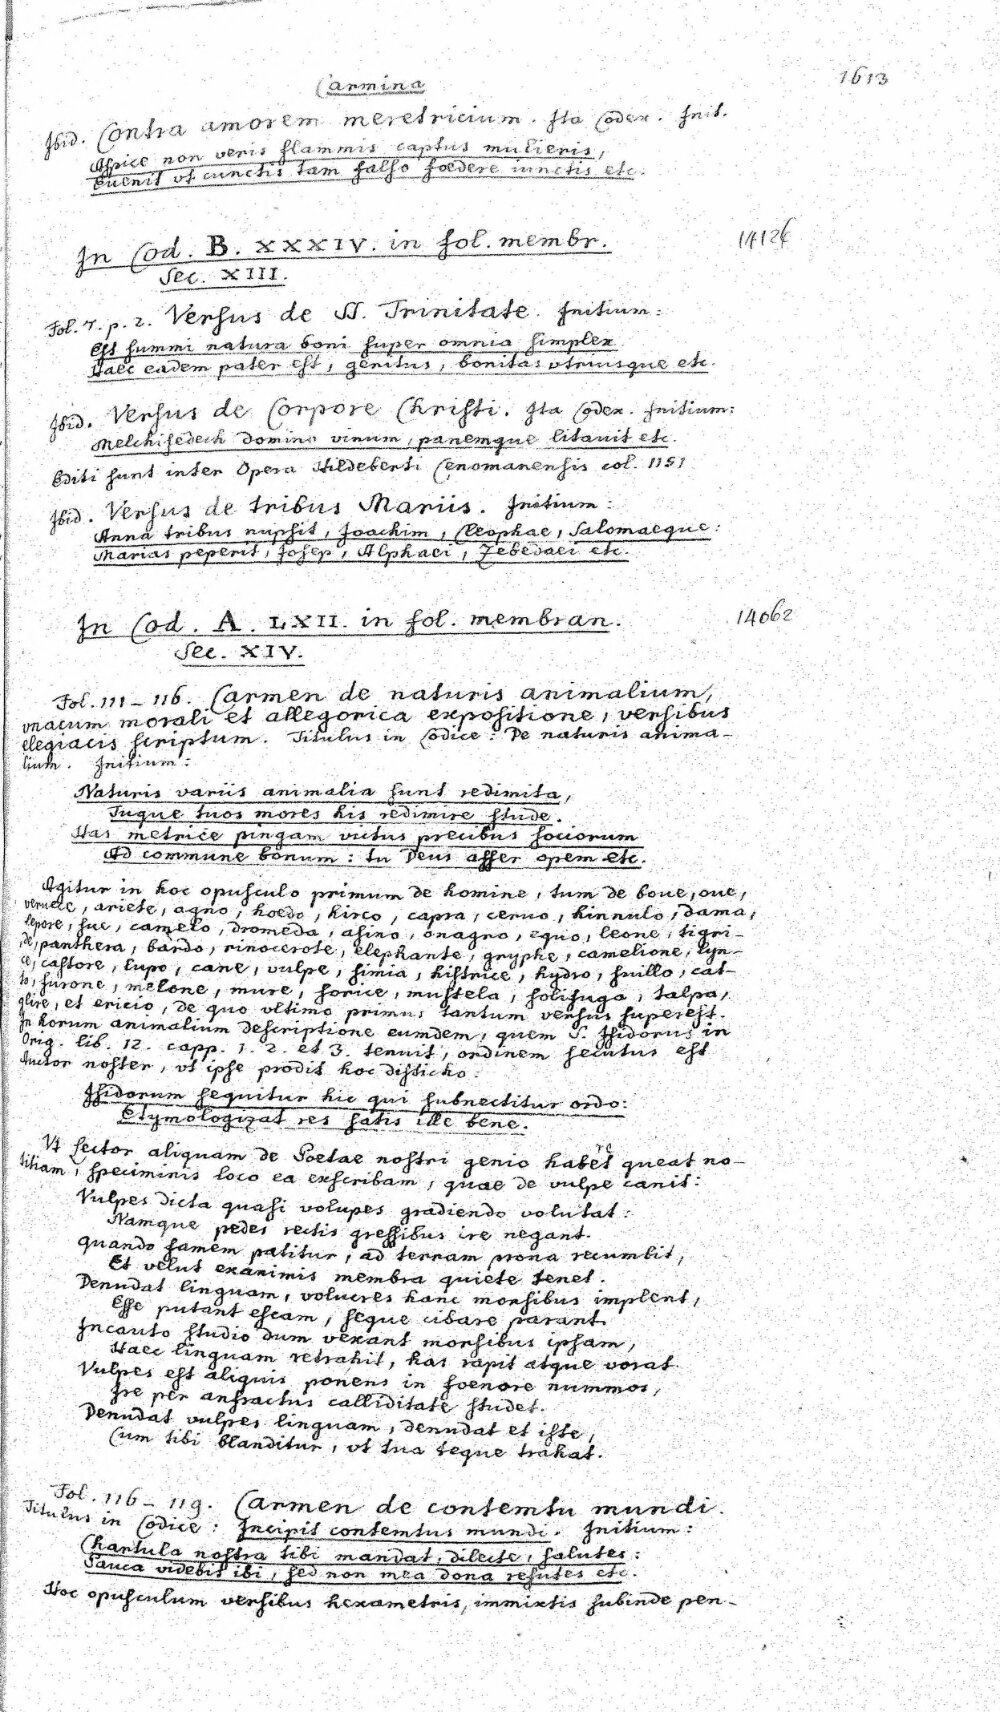 Carmina
1613
Ibid. Contra amorem meretricium. Ita Codex. Init.
Aspice non veris flammis captus mulieris,
Euenit vt cunctis tam falso foedere iunctis etc.
In Cod. B. XXXIV. in fol. membr.
14126
Sec. XIII.
Fol. 7. p. 2. Versus de SS. Trinitate. Initium:
Est summi natura boni super omnia simplex
Haec eadem pater est, genitus, bonitas vtriusque etc.
Ibid. Versus de Corpore Christi. Ita Codex. Initium:
Melchisedech domino vinum, panemque litauit etc.
Editi sunt inter Opera Hildeberti Cenomanensis col. 1151
Ibid. Versus de tribus Mariis. Initium:
Anna tribus nupsit, Joachim, Cleophae, Salomaeque:
Marias peperit, Josep, Alphaei, Zebedaei etc.
In Cod. A. LXII. in fol. membran.
14062
Sec. XIV.
Fol. 111 - 116. Carmen de naturis animalium,
vnacum morali et allegorica expositione, versibus
elegiacis scriptum. Titulus in Codice: De naturis anima-
lium. Initium:
Naturis variis animalia sunt redimita,
Tuque tuos mores his redimire stude.
Has metrice pingam victus precibus sociorum
Ad commune bonum: tu Deus affer opem etc.
Agitur in hoc opusculo primum de homine, tum de boue, oue,
veruece, ariete, agno, hoedo, hirco, capra, ceruo, hinnulo, dama,
lepore, sue, camelo, dromeda, asino, onagro, equo, leone, tigri-
de, panthera, bardo, rinocerote, elephante, gryphe, camelione, lyn-
ce, castore, lupo, cane, vulpe, simia, histrice, hydro, suillo, cat-
to, furone, melone, mure, sorice, mustela, solifuga, talpa,
glire, et ericio, de quo vltimo primus tantum versus superest.
In horum animalium descriptione eumdem, quem S. Isidorus in
Orig. lib. 12. capp. 1. 2. et 3. tenuit, ordinem secutus est
Auctor noster, vt ipse prodit hoc disticho:
Isidorum sequitur hic qui subnectitur ordo:
Etymologizat res satis ille bene.
Vt Lector aliquam de Poetae nostri genio habere queat no-
titiam, speciminis loco ea exscribam, quae de vulpe canit:
Vulpes dicta quasi volupes gradiendo volutat:
Namque pedes rectis gressibus ire negant.
Quando famem patitur, ad terram prona recumbit,
Et velut exanimis membra quiete tenet.
Denudat linguam, volucres hanc morsibus implent,
Esse putant escam, seque cibare parant.
Incauto studio dum vexant morsibus ipsam,
Haec linguam retrahit, has rapit atque vorat.
Vulpes est aliquis ponens in foenore nummos,
Ire per anfractus calliditate studet.
Denudat vulpes linguam, denudat et iste,
Cum tibi blanditur, vt tua teque trahat.
Fol. 116 - 119. Carmen de contemtu mundi.
Titulus in Codice: Incipit contemtus mundi. Initium:
Chartula nostra tibi mandat, dilecte, salutes:
Pauca videbit ibi, sed non mea dona refutes etc.
Hoc opusculum versibus hexametris, immixtis subinde pen-